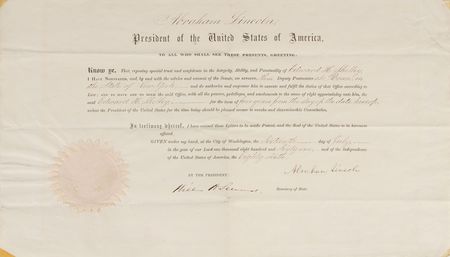 Abraham Lincoln,
President of the United States of America,
TO ALL WHO SHALL SEE THESE PRESENTS, GREETING:
Know ye, That reposing special trust and confidence in the Integrity, Ability, and Punctuality of Edward M.
I HAVE NOMINATED, and, by and with the advice and consent of the Senate, DO APPOINT, him Deputy Postmaster at
the State of New York and do authorize and empower him to execute and fulfil the duties of that Office according to
LAW; AND TO HAVE AND TO HOLD the said Office, with all the powers, privileges, and emoluments to the same of right appertaining unto him, the
said Edward M. for the term of four years from the day of the date hereof,
unless the President of the United States for the time being should be pleased sooner to revoke and determine this Commission.
In testimony whereof, I have caused these Letters to be made Patent, and the Seal of the United States to be hereunto
affixed.
GIVEN under my hand, at the City of Washington, the day of July
in the year of our Lord one thousand eight hundred and and of the Independence
of the United States of America, the Eighty
BY THE PRESIDENT:
Abraham Lincoln
William H. Seward Secretary of State.